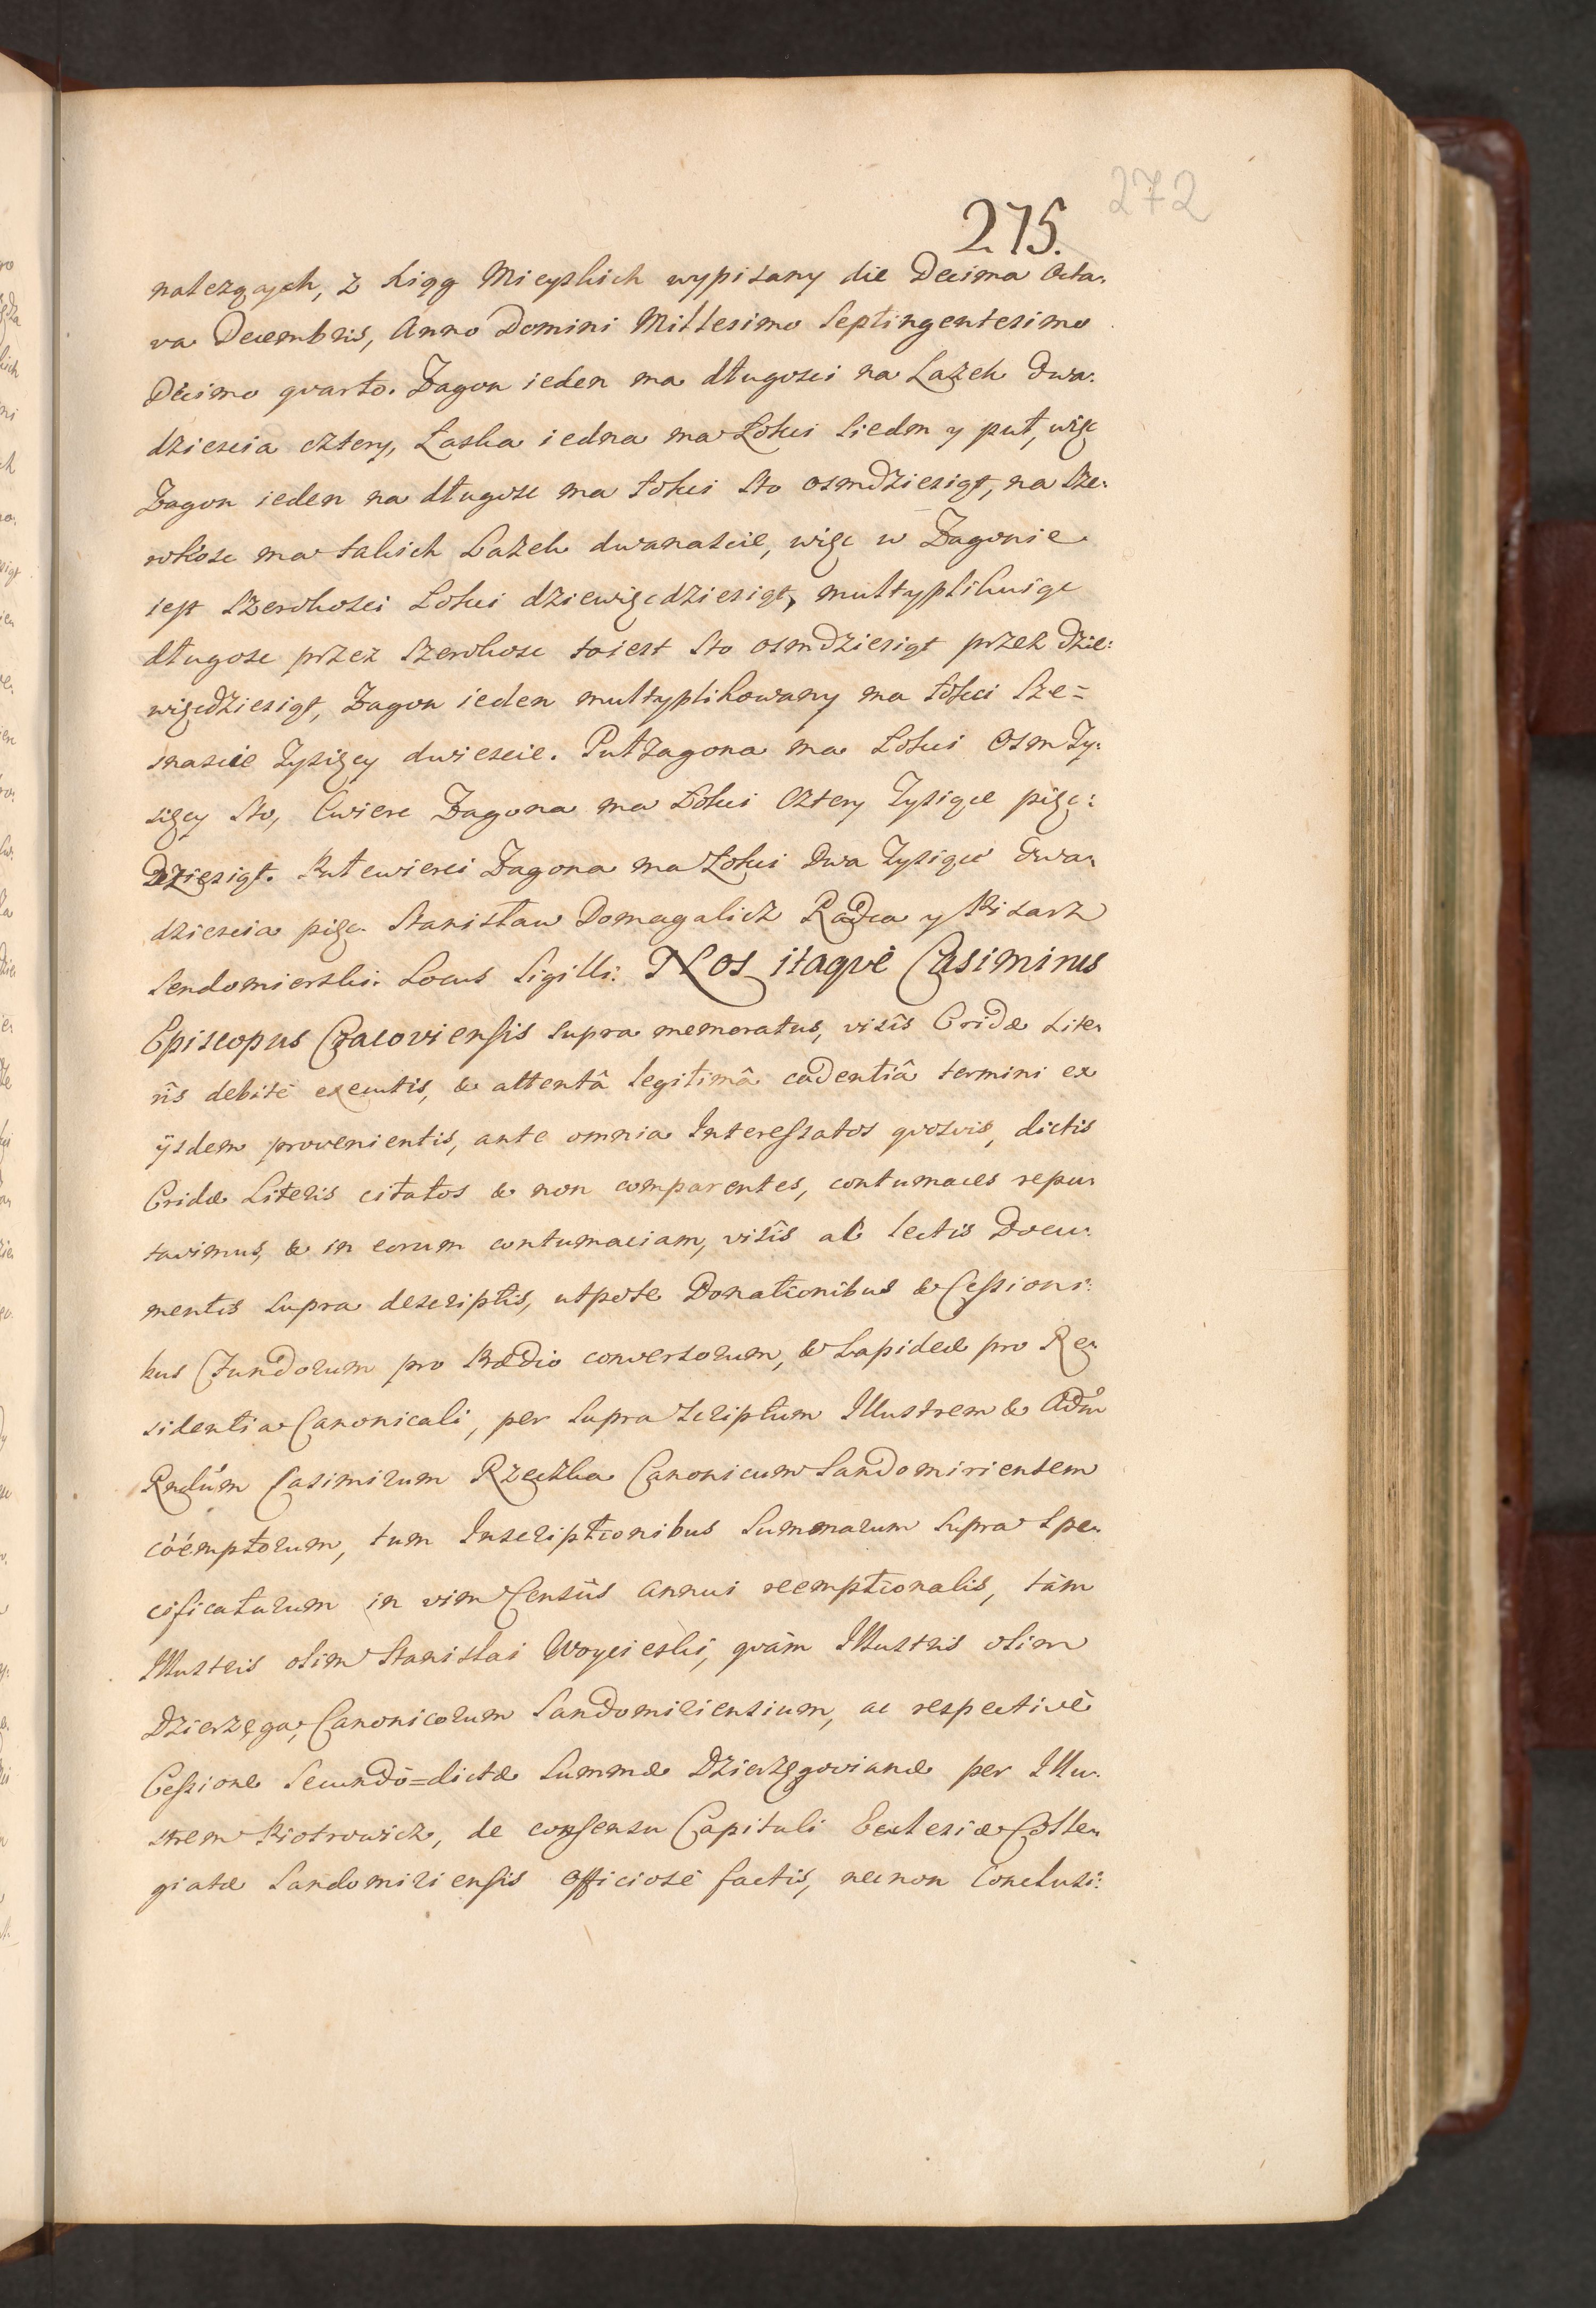 272
275.
należących, z Xiąg Mieyskich wypisany die Decima Octa-
va Decembris, Anno Domini Millesimo Septingentesimo
Decimo qvarto. Zagon ieden ma długosci na Lazek dwa-
dziescia cztery, Laska iedna ma Łokci siedm y puł, więc
Zagon ieden na długosc ma łokci sto osmdziesiąt, na sze-
rokosc ma takich Lazek dwanascie, więc w Zagonie
iest szerokosci Łokci dziewięcdziesiąt, multyplikuiąc
długosc przez szerokosc toiest sto osmdziesiąt przez dzie-
więcdziesiąt, Zagon ieden multyplikowany ma łokci sze=
snascie Tysięcy dwiescie. Puł Zagona ma Łokci Osm Ty-
sięcy sto, Cwierc Zagona ma Łokci Cztery Tysiące pięc-
dziesiąt. Puł cwierci Zagona ma Łokci dwa Tysiące dwa-
dziescia pięc. Stanisław Domagalicz Radca y Pisarz
Sendomierski. Locus Sigilli. Nos itaqvè Casimirus
Episcopus Cracoviensis supra memoratus, visîs Cridæ Lite-
rîs debitè executis, & attentâ legitimâ cadentiâ termini ex
ijsdem provenientis, ante omnia Interessatos qvosvis, dictis
Cridæ Literis citatos & non comparentes, contumaces repu-
tavimus, & in eorum contumaciam, visîs ac lectis Docu-
mentis supra descriptis, utpote Donationibus & Cessioni-
bus Fundorum pro Prædio conversorum, & Lapideæ pro Re-
sidentia Canonicali, per supra scriptum Illustrem & Adm
Rndum Casimirum Rzeczka Canonicum Sandomiriensem
cöemptorum, tum Inscriptionibus Summarum supra spe-
cificatarum in vim Censûs annui reemptionalis, tàm
Illustris olim Stanislai Woycieski, qvàm Illustris olim
Dzierzęga, Canonicorum Sandomiriensium, ac respectivè
Cessione secundò=dictæ Summæ Dzierzęgovianæ per Illu-
strem Piotrowicz, de consensu Capituli Ecclesiæ Colle-
giatæ Sandomiriensis officiosè factis, necnon Conclusi-